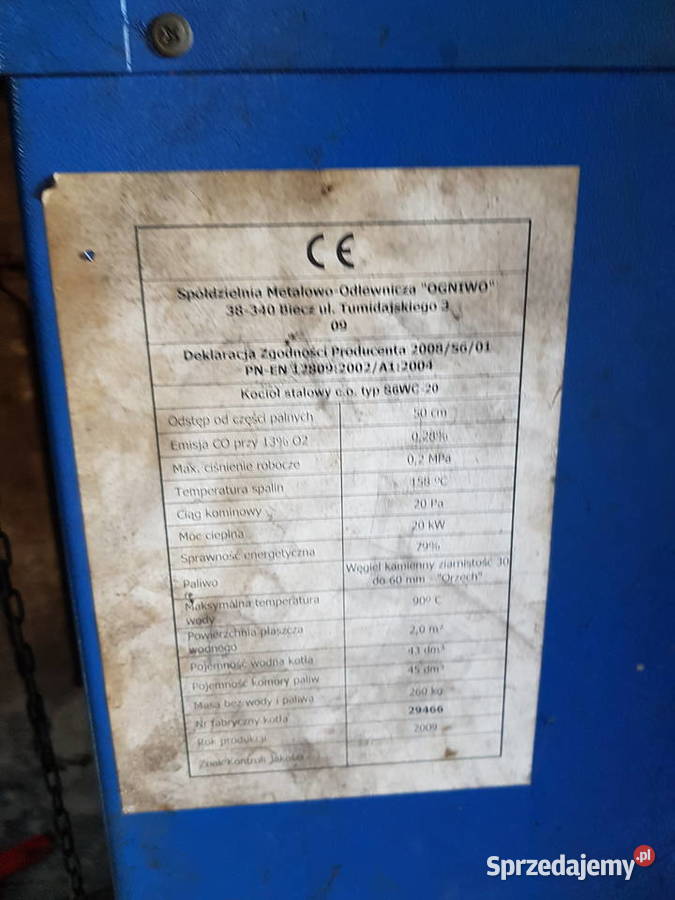 CE
Spółdzielnia Metalowo-Odlewnicza "OGNIWO"
38-340 Biecz ul. Tumidajskiego 3
09
Deklaracja Zgodności Producenta 2008/S6/01
PN-EN 12809:2002/A1:2004
Kocioł stalowy c.o. typ S6WC-20
Odstęp od części palnych 50 cm
Emisja CO przy 13% O2 0,28%
Max. ciśnienie robocze 0,2 MPa
Temperatura spalin 158 ºC
Ciąg kominowy 20 Pa
Moc cieplna 20 kW
Sprawność energetyczna 79%
Paliwo Węgiel kamienny ziarnistość 30
do 60 mm - "Orzech"
Maksymalna temperatura
wody 90º C
Powierzchnia płaszcza
wodnego 2,0 m²
Pojemność wodna kotła 43 dm³
Pojemność komory paliw 45 dm³
Masa bez wody i paliwa 260 kg
Nr fabryczny kotła 29466
Rok produkcji 2009
Znak Kontroli Jakości
Sprzedajemy.pl